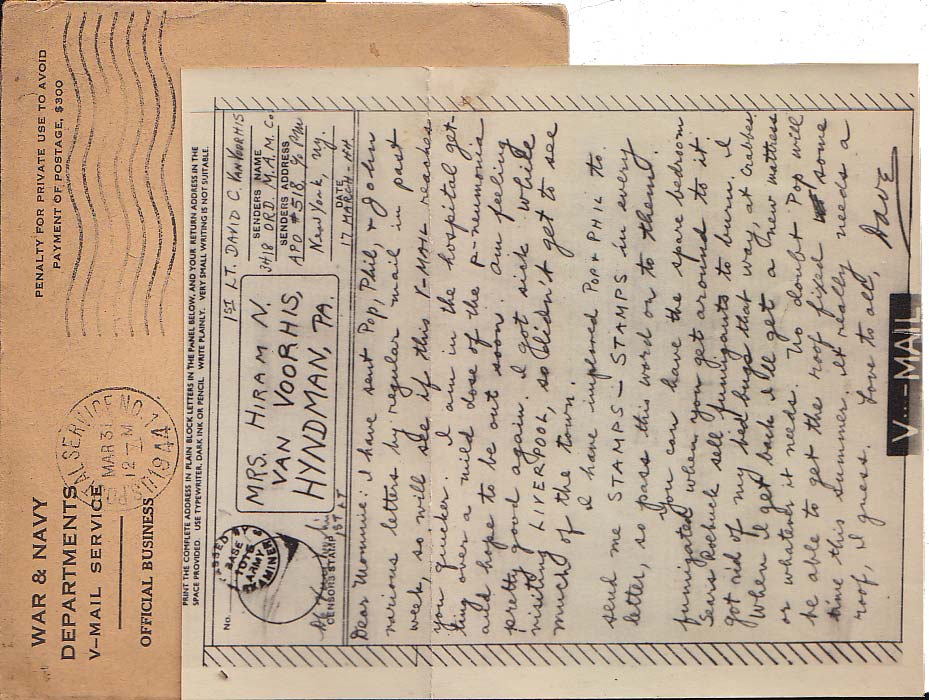 WAR & NAVY
DEPARTMENTS
V–MAIL SERVICE
OFFICIAL BUSINESS
PENALTY FOR PRIVATE USE TO AVOID
PAYMENT OF POSTAGE, $300
POSTAL SERVICE NO. 1
MAR 31
12 – M
1944
PRINT THE COMPLETE ADDRESS IN PLAIN BLOCK LETTERS IN THE PANEL BELOW, AND YOUR RETURN ADDRESS IN THE
SPACE PROVIDED. USE TYPEWRITER, DARK INK OR PENCIL. WRITE PLAINLY. VERY SMALL WRITING IS NOT SUITABLE.
No.
PASSED BY
BASE
ARMY
EXAMINER
CENSORS STAMP
MRS. HIRAM N.
VAN VOORHIS,
HYNDMAN, PA.
1ST LT. DAVID C. VAN VOORHIS
SENDERS NAME
3418 ORD. M.A.M. Co.
SENDERS ADDRESS
APO #518, c/o PM
New York, N.Y.
DATE
17 MARCH - 44
Dear Mommie: I have sent Pop, Phil, & John
various letters by regular mail in past
week, so will see if this V-MAIL reaches
you quicker. I am in the hospital get-
ting over a mild dose of the P-neumonia
and hope to be out soon. am feeling
pretty good again. I got sick while
visiting LIVERPOOL, so didn't get to see
much of the town.
I have implored POP & PHIL to
send me STAMPS – STAMPS in every
letter, so pass this word on to them!
You can have the spare bedroom
fumigated when you get around to it.
Sears Roebuck sell fumigants to burn. I
got rid of my bed bugs that way, at Crabbes.
When I get back I'll get a new mattress
or whatever it needs. No doubt Pop will
be able to get the roof fixed some
time this summer. it really needs a
roof, I guess. Love to all,
Dave
V···–MAIL